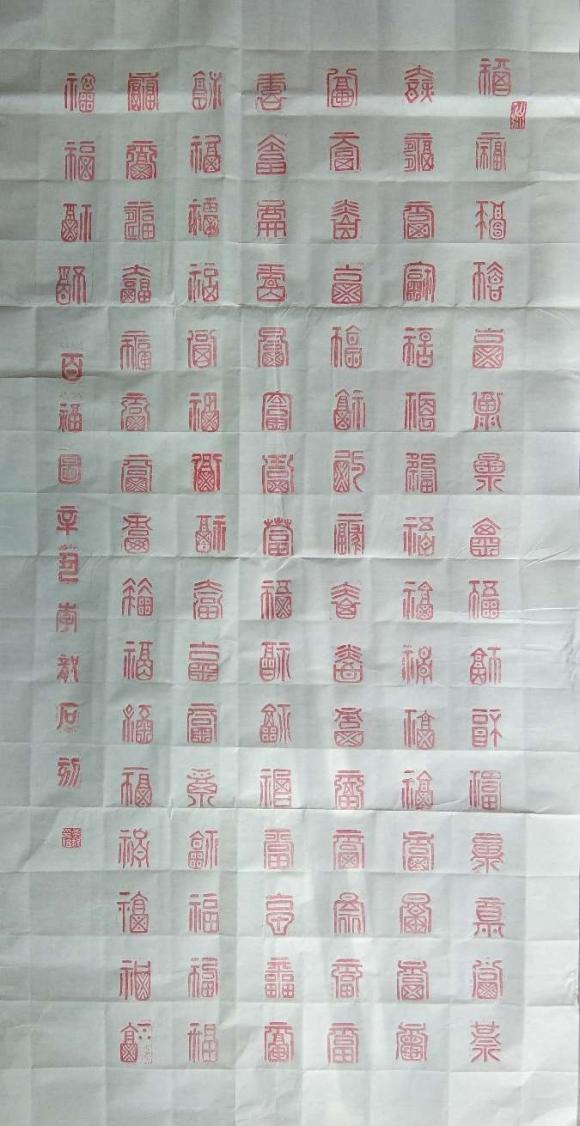 福福福福福福福福福福福福福福福福
福福福福福福福福福福福福福福福福
福福福福福福福福福福福福福福福福
福福福福福福福福福福福福福福福福
福福福福福福福福福福福福福福福福
福福福福福福福福福福福福福福福福
福福福福
百福圖辛李石刻